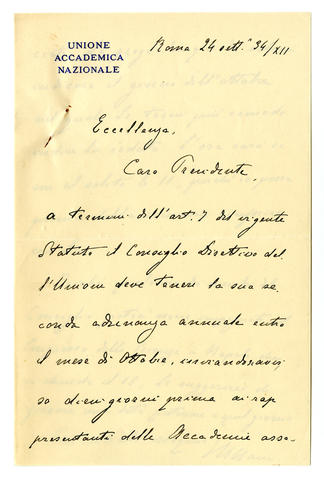 UNIONE
ACCADEMICA
NAZIONALE
Roma 24 sett.e 34/XII
Eccellenza,
Caro Presidente,
a termini dell'art. 7 del vigente
Statuto il Consiglio Direttivo del-
l'Unione deve tenere la sua se-
conda adunanza annuale entro
il mese di Ottobre, inviandosi avvi-
so dieci giorni prima ai rap
presentanti delle Accademie asso-